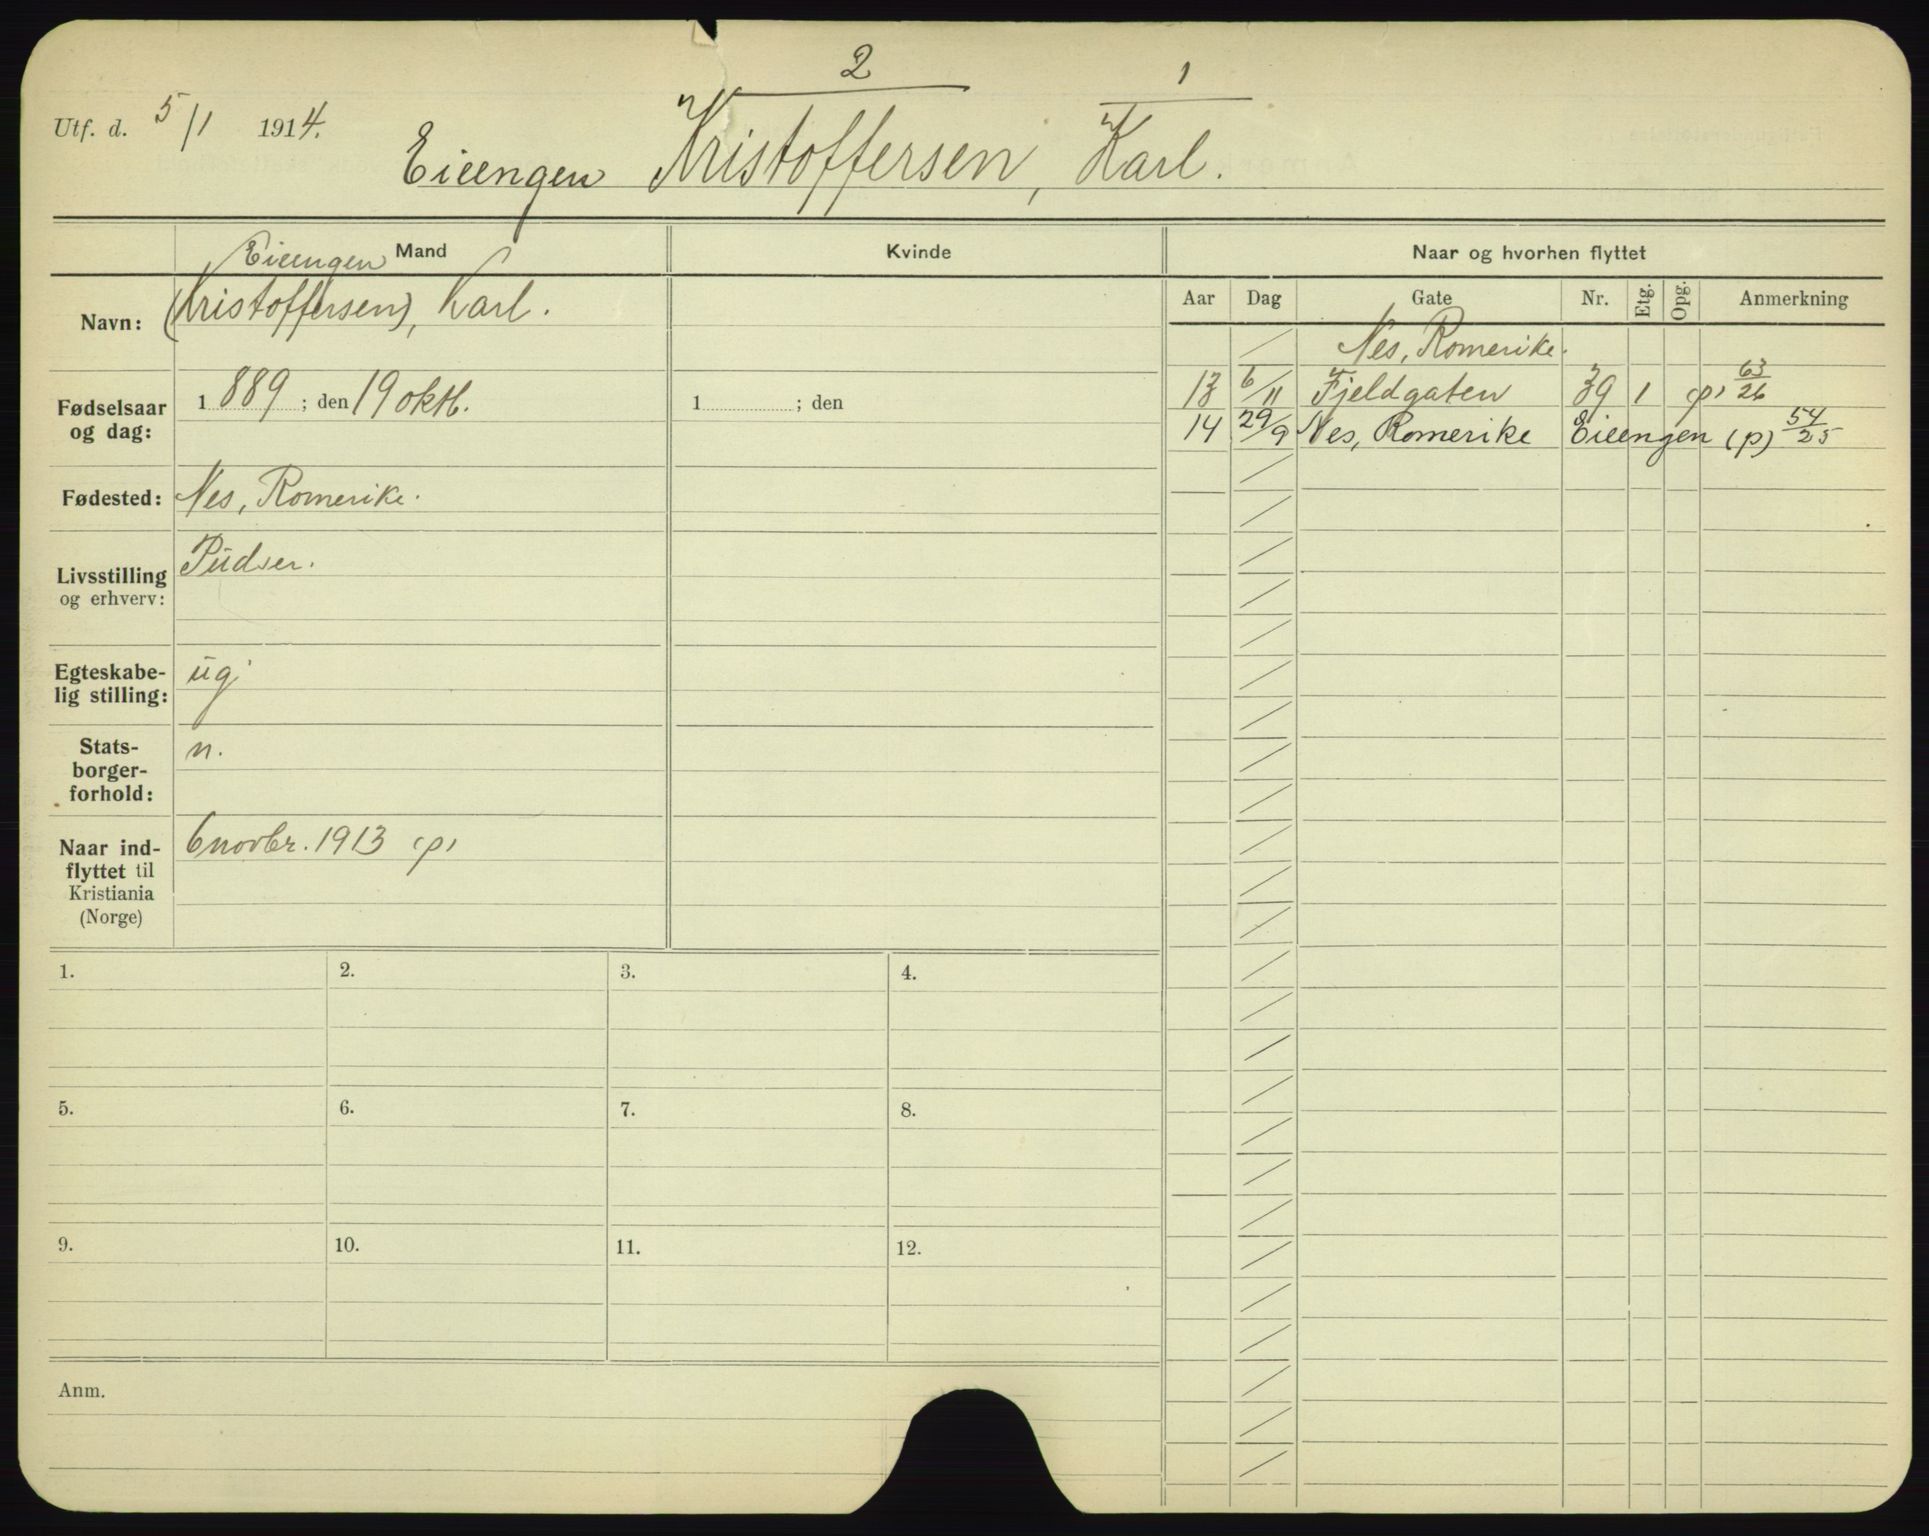 2 1
Utf. d. 5/1 1914.
Eieengen Kristoffersen, Karl.
Mand Kvinde Naar og hvorhen flyttet
Eieengen
Navn: (Kristoffersen), Karl.
Aar Dag Gate Nr. Etg. Opg. Anmerkning
Nes, Romerike.
Fødselsaar og dag: 1889; den 19 oktb. 1 ; den
13 6/11 Fjeldgaten 39 1 (p) 63/26
14 29/9 Nes, Romerike Eieengen (p) 54/25
Fødested: Nes, Romerike.
Livsstilling og erhverv: Pudser.
Egteskabe-
lig stilling: ug.
Stats-
borger-
forhold: n.
Naar ind-
flyttet til
Kristiania
(Norge) 6 novbr. 1913 (p)
1. 2. 3. 4.
5. 6. 7. 8.
9. 10. 11. 12.
Anm.